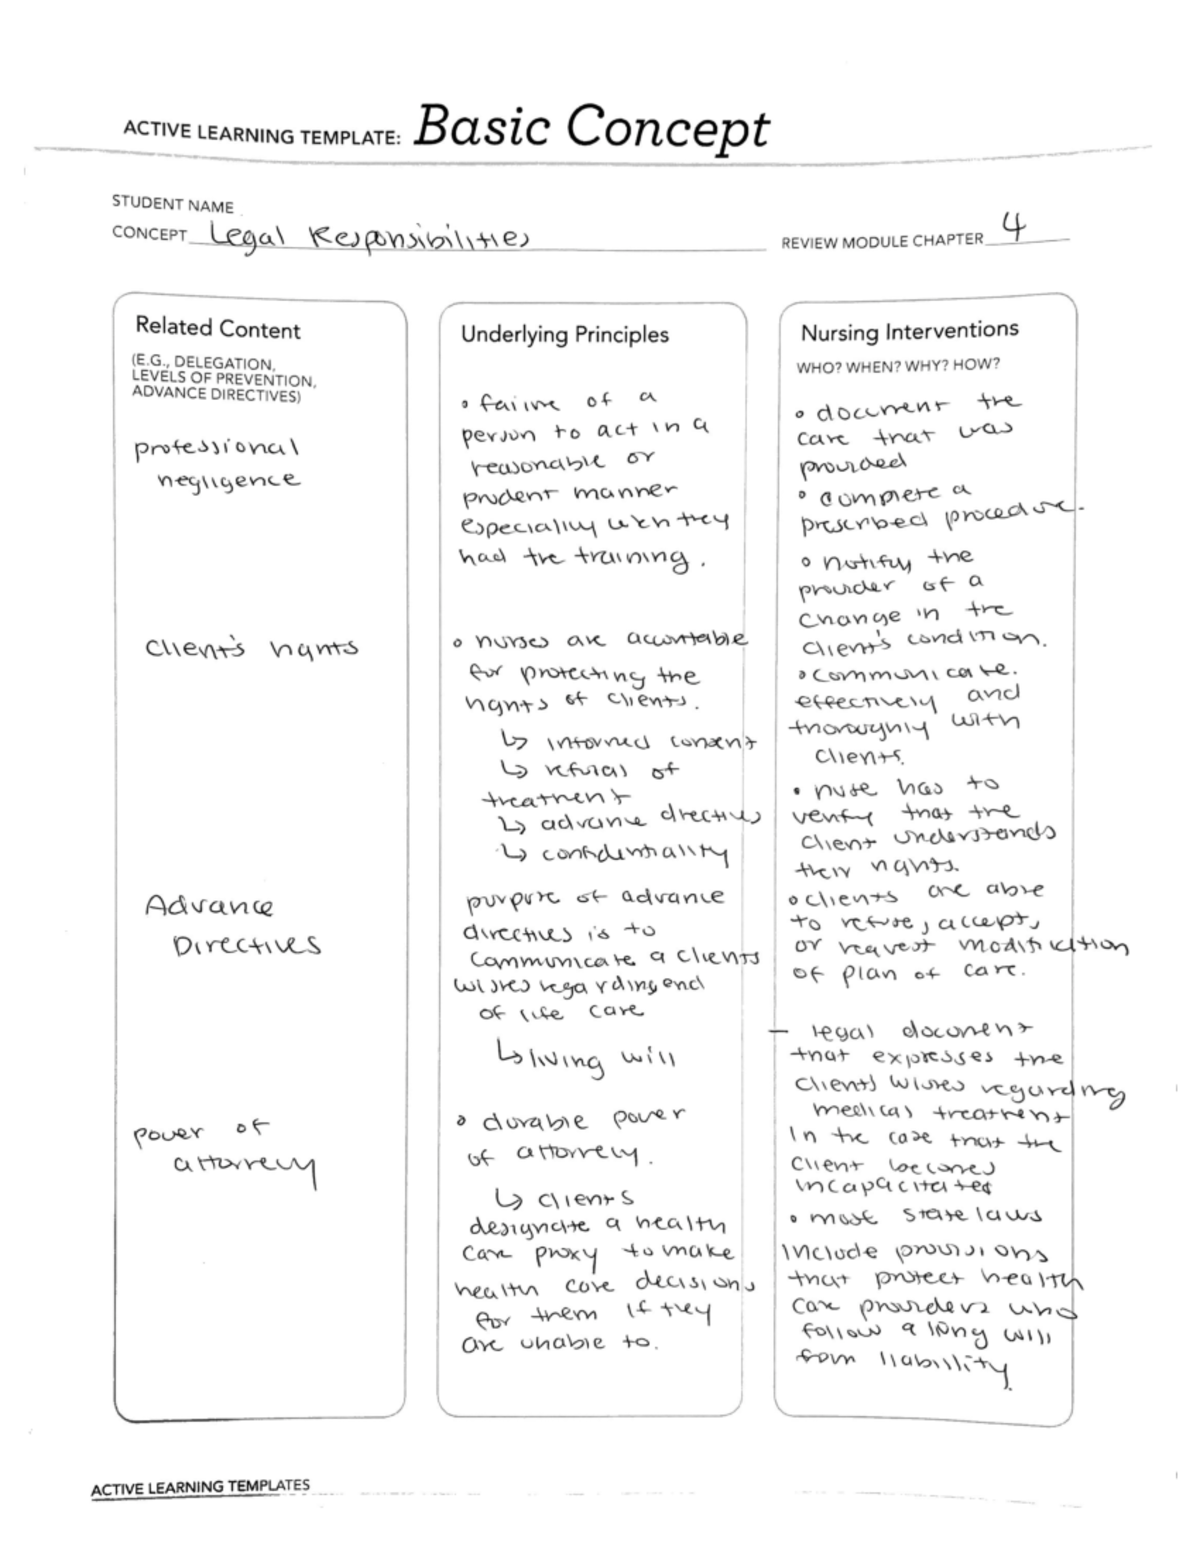 ACTIVE LEARNING TEMPLATE: Basic Concept
STUDENT NAME
CONCEPT Legal Responsibilities
REVIEW MODULE CHAPTER 4
Related Content
(E.G., DELEGATION,
LEVELS OF PREVENTION,
ADVANCE DIRECTIVES)
professional
negligence
Client's rights
Advance
Directives
power of
attorney
Underlying Principles
• failure of a
person to act in a
reasonable or
prudent manner
especially when they
had the training.
• nurses are accountable
for protecting the
rights of clients.
↳ informed consent
↳ refusal of
treatment
↳ advance directives
↳ confidentiality
purpose of advance
directives is to
communicate a clients
wishes regarding end
of life care
↳ living will
• durable power
of attorney.
↳ clients
designate a health
care proxy to make
health care decisions
for them if they
are unable to.
Nursing Interventions
WHO? WHEN? WHY? HOW?
• document the
care that was
provided
• complete a
prescribed procedure.
• notify the
provider of a
change in the
client's condition.
• communicate.
effectively and
thoroughly with
clients.
• nurse has to
verify that the
client understands
their rights.
• clients are able
to refuse, accept,
or request modification
of plan of care.
— legal document
that expresses the
clients wishes regarding
medical treatment
In the case that the
client becomes
incapacitated
• most state laws
include provisions
that protect health
care providers who
follow a living will
from liability.
ACTIVE LEARNING TEMPLATES